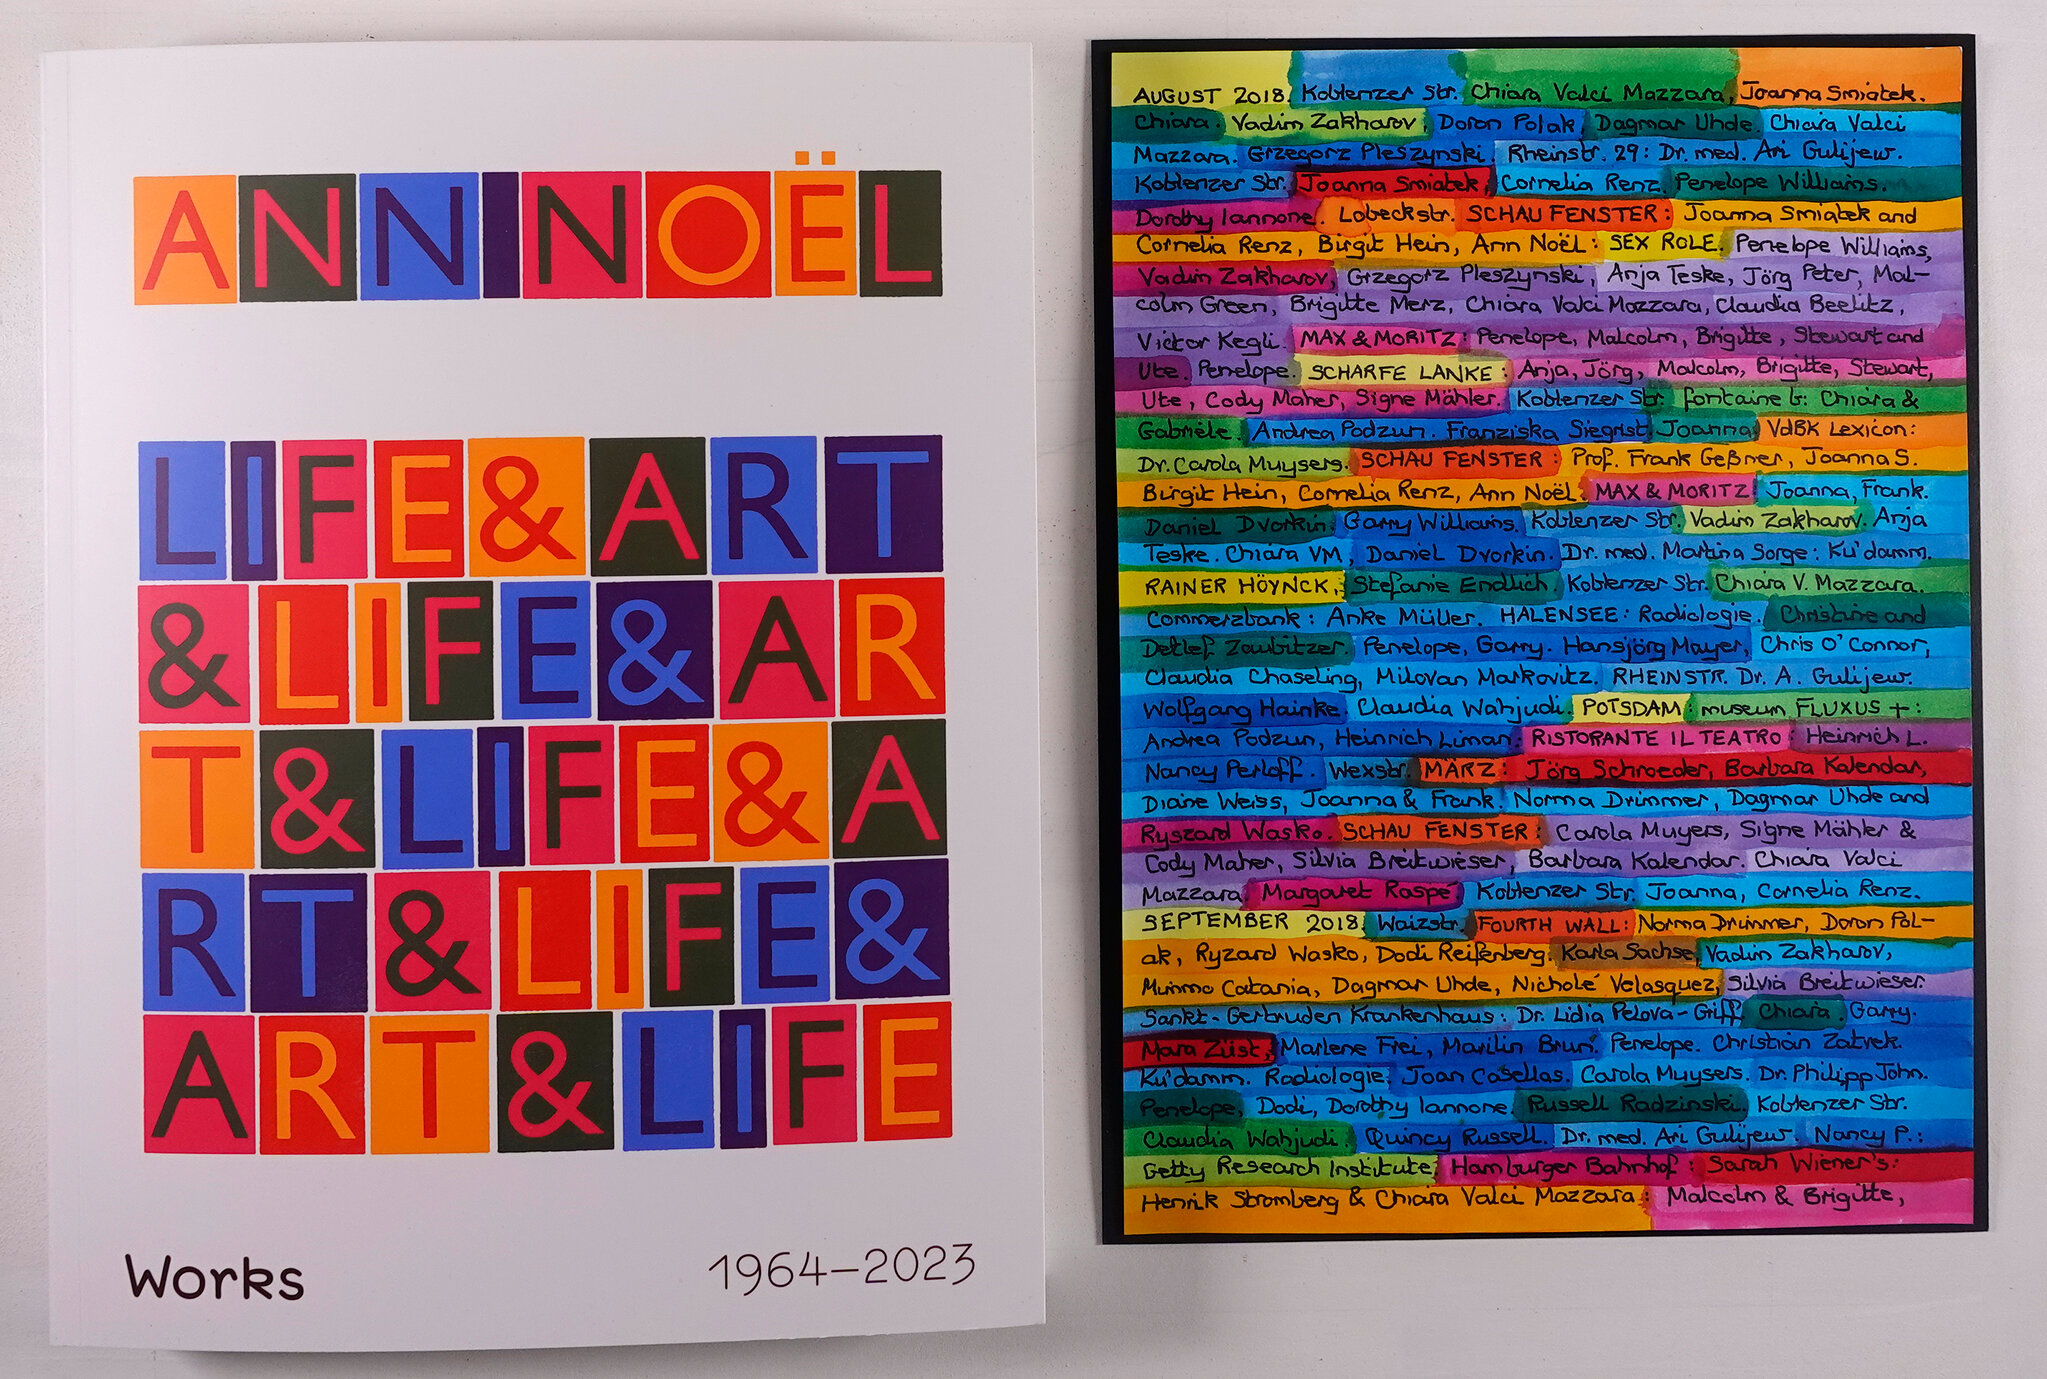 ANN NOËL
LIFE&ART
&LIFE&AR
T&LIFE&A
RT&LIFE&
ART&LIFE
Works
1964–2023
AUGUST 2018. Koblenzer Str. Chiara Valci Mazzara, Joanna Smiatek.
Chiara. Vadim Zakharov, Doron Polak, Dagmar Uhde. Chiara Valci
Mazzara. Grzegorz Pleszynski. Rheinstr. 29: Dr. med. Ari Gulijew.
Koblenzer Str. Joanna Smiatek, Cornelia Renz, Penelope Williams.
Dorothy Iannone. Lobeckstr. SCHAU FENSTER: Joanna Smiatek and
Cornelia Renz, Birgit Hein, Ann Noël: SEX ROLE. Penelope Williams,
Vadim Zakharov, Grzegorz Pleszynski, Anja Teske, Jörg Peter, Mal-
colm Green, Brigitte Merz, Chiara Valci Mazzara, Claudia Beelitz,
Victor Kegli. MAX & MORITZ: Penelope, Malcolm, Brigitte, Stewart and
Ute. Penelope. SCHARFE LANKE: Anja, Jörg, Malcolm, Brigitte, Stewart,
Ute, Cody Maher, Signe Mähler. Koblenzer Str. fontaine b: Chiara &
Gabriele. Andrea Podzun. Franziska Siegrist. Joanna. VdBK Lexicon:
Dr. Carola Muysers. SCHAU FENSTER: Prof. Frank Geßner, Joanna S.
Birgit Hein, Cornelia Renz, Ann Noël. MAX & MORITZ: Joanna, Frank.
Daniel Dvorkin. Garry Williams. Koblenzer Str. Vadim Zakharov. Anja
Teske. Chiara VM, Daniel Dvorkin. Dr. med. Martina Sorge: Ku'damm.
RAINER HÖYNCK, Stefanie Endlich. Koblenzer Str. Chiara V. Mazzara.
Commerzbank: Anke Müller. HALENSEE: Radiologie. Christine and
Detlef Zaubitzer. Penelope, Garry. Hansjörg Mayer, Chris O'Connor,
Claudia Chaseling, Milovan Markovitz. RHEINSTR. Dr. A. Gulijew.
Wolfgang Hainke. Claudia Wahjudi. POTSDAM: museum FLUXUS +:
Andrea Podzun, Heinrich Liman. RISTORANTE IL TEATRO: Heinrich L.
Nancy Perloff. Wexstr. MÄRZ: Jörg Schroeder, Barbara Kalendar,
Diane Weiss, Joanna & Frank. Norma Drimmer, Dagmar Uhde and
Ryszard Wasko. SCHAU FENSTER: Carola Muyers, Signe Mähler &
Cody Maher, Silvia Breitwieser, Barbara Kalendar. Chiara Valci
Mazzara. Margaret Raspé. Koblenzer Str. Joanna, Cornelia Renz.
SEPTEMBER 2018. Waizstr. FOURTH WALL: Norma Drimmer, Doron Pol-
ak, Ryzard Wasko, Dodi Reifenberg. Karla Sachse, Vadim Zakharov,
Mimmo Catania, Dagmar Uhde, Nicholé Velasquez, Silvia Breitwieser.
Sankt-Gertruden Krankenhaus: Dr. Lidia Pelova-Griff. Chiara. Garry.
Mara Züst, Marlene Frei, Marilin Brun. Penelope. Christian Zatrek.
Ku'damm. Radiologie. Joan Casellas. Carola Muysers. Dr. Philipp John.
Penelope, Dodi, Dorothy Iannone. Russell Radzinski. Koblenzer Str.
Claudia Wahjudi. Quincy Russell. Dr. med. Ari Gulijew. Nancy P.:
Getty Research Institute. Hamburger Bahnhof: Sarah Wiener's:
Henrik Stromberg & Chiara Valci Mazzara: Malcolm & Brigitte,